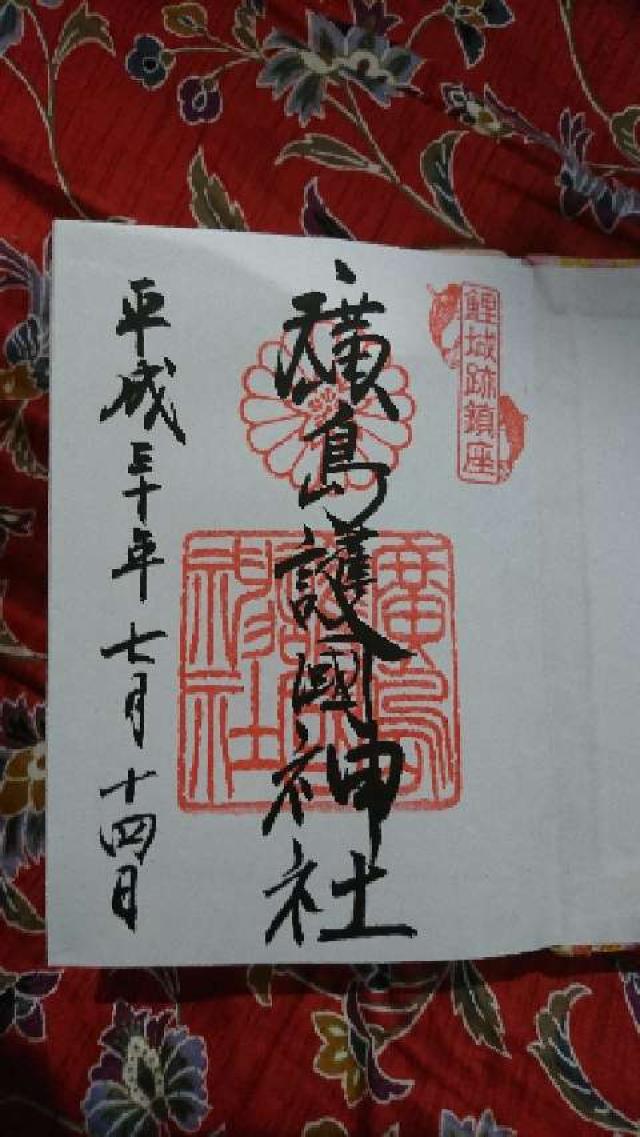 鯉城跡鎮座
廣島護國神社
廣島護國神社
平成三十年七月十四日